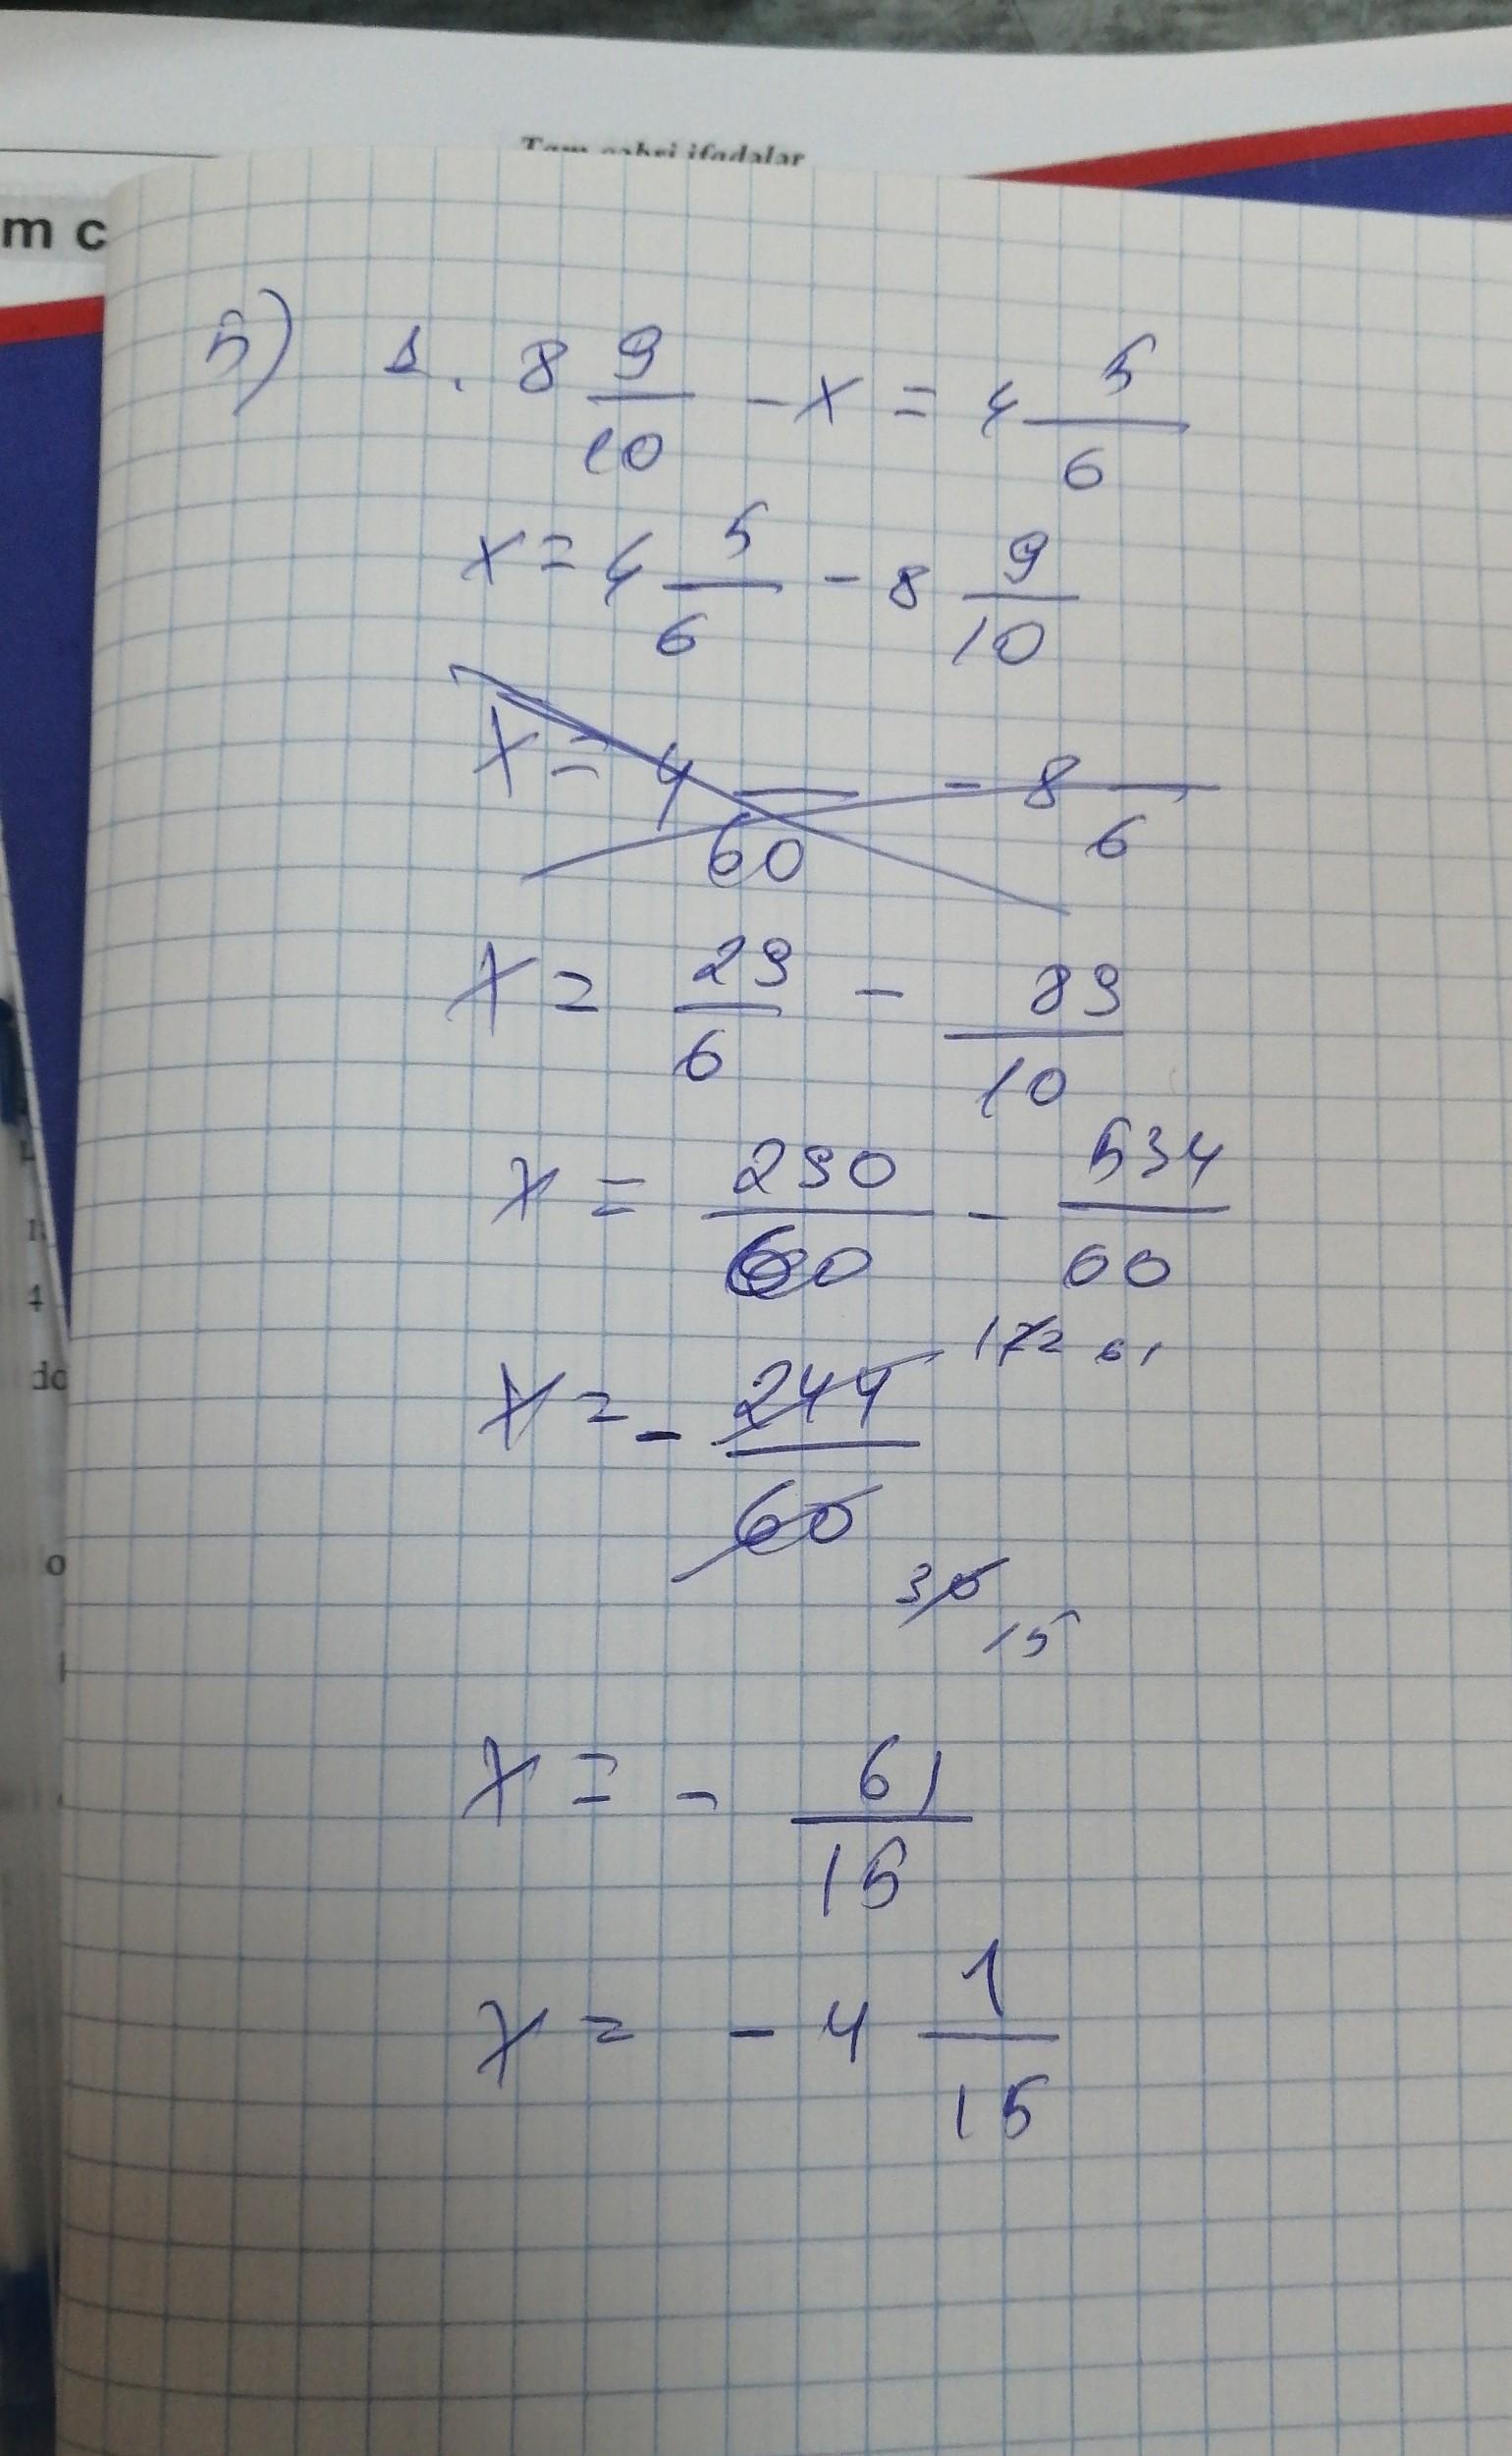 Tam cəbri ifadələr
m c
5) 1. 8 9/10 - x = 4 5/6
x = 4 5/6 - 8 9/10
x = 4 /60 - 8 /6
x = 29/6 - 89/10
x = 290/60 - 534/60
x = - 244/60 172 61 30 15
x = - 61/15
x = - 4 1/15
4
do
o